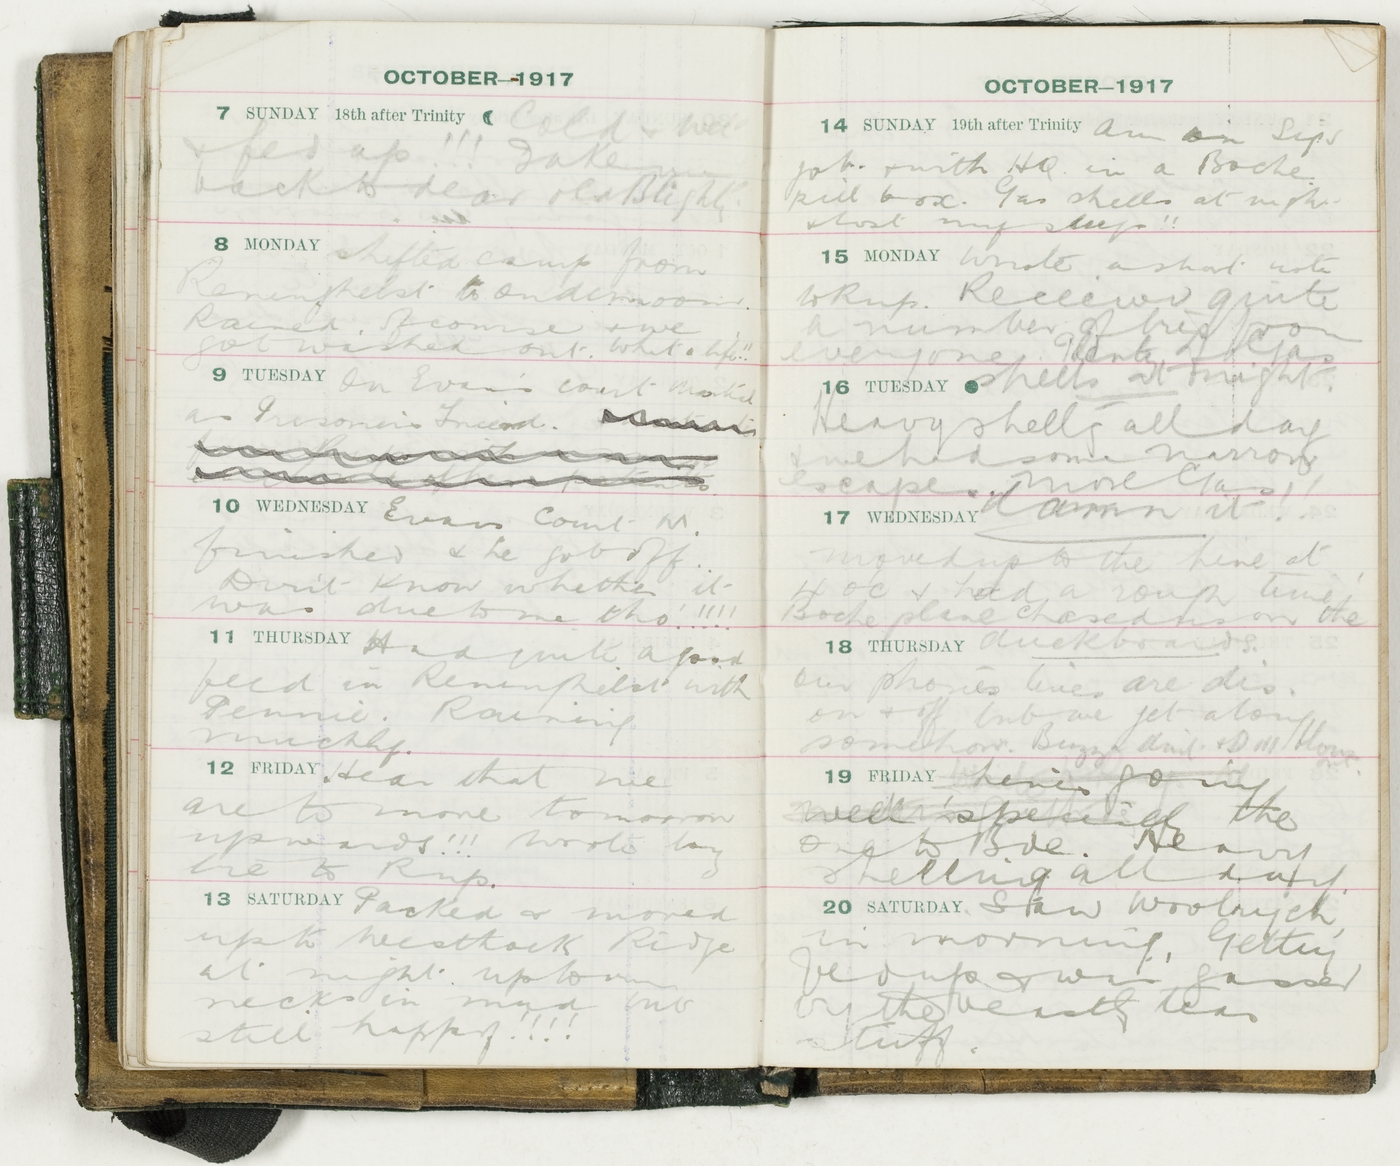 OCTOBER—1917
7 SUNDAY 18th after Trinity Cold & wet
& fed up!!! Take me
back to dear old Blighty.
8 MONDAY shifted camp from
Reninghelst to Ouderdoom.
Rained of course & we
got washed out. What a life!!
9 TUESDAY On Evans court martial
as Prisoner's Friend.
10 WEDNESDAY Evans Court M.
finished & he got off.
Don't know whether it
was due to me tho'!!!!
11 THURSDAY Had quite a good
feed in Reninghelst with
Pennie. Raining
muchly.
12 FRIDAY Hear that we
are to move tomorrow
upwards!!! Wrote long
tre to Rup.
13 SATURDAY Packed & moved
up to Westhoek Ridge
at night. up to our
necks in mud but
still happy!!!!
OCTOBER—1917
14 SUNDAY 19th after Trinity Am on Sigs
job & with HQ. in a Boche
pill box. Gas shells at night
& lost my sleep!!
15 MONDAY Wrote a short note
to Rup. Received quite
a number of tres from
everyone. Plenty of Gas
shells at night.
16 TUESDAY
Heavy shellg all day
& we had some narrow
escapes. More Gas!!
damn it!!
17 WEDNESDAY
moved up to the line at
4 oc & had a rough time,
Boche plane chased us on the
duckboards.
18 THURSDAY
our phones lines are dis.
on & off but we get along
somehow. Buzzer dint & D III blown
out.
19 FRIDAY lines going
well 'specially the
one to Bde. Heavy
shelling all day.
20 SATURDAY Saw Woolrych
in morning. Getting
fed up & was gassed
by the beastly tear
stuff.